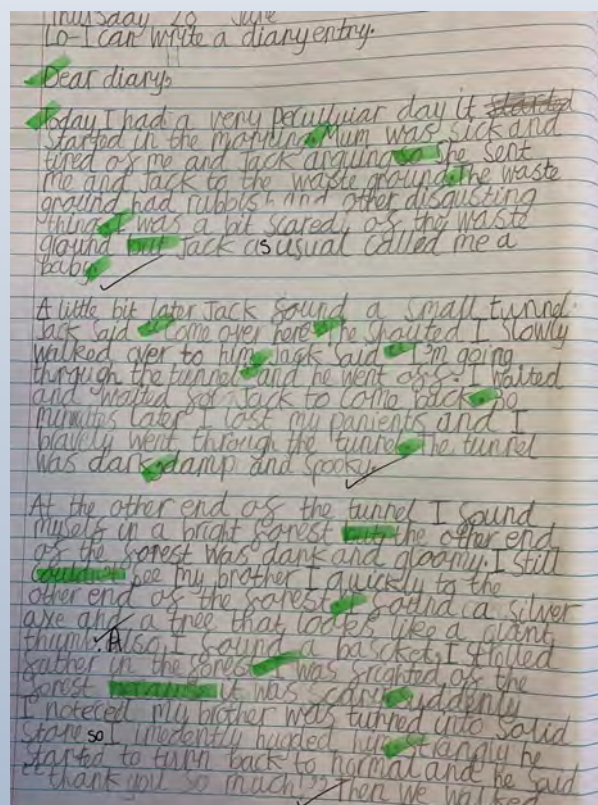 Thursday 28 June
Lo-I can write a diary entry.
Dear diary,
Today I had a very peculluiar day it started
started in the morning. Mum was sick and
tired of me and Jack arguing so she sent
me and Jack to the waste ground. The waste
ground had rubbish and other disgusting
things. I was a bit scared, of the waste
ground but Jack as usual called me a
baby.
A little bit later Jack found a small tunnel.
Jack said "Come over here" he shouted I slowly
walked over to him. Jack said "I'm going
through the tunnel" and he went off. I waited
and waited for Jack to come back. 30
minutes later I lost my panients and I
blavely went through the tunnel. The tunnel
was dark, damp and spooky.
At the other end of the tunnel I found
myself in a bright forest but the other end
of the forest was dark and gloomy. I still
couldn't see my brother I quickly to the
other end of the forest. I found a silver
axe and a tree that looks like a giant
thumb. Also I found a bascket. I strolled
father in the forest. I was frighted of the
forest because it was scary. Suddenly
I noteced my brother was turned into solid
stone so I imedently hugged him. Strangly he
started to turn back to normal and he said
"thank you so much." Then we